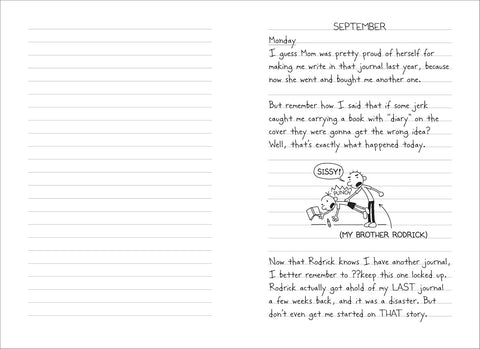 SEPTEMBER
Monday
I guess Mom was pretty proud of herself for
making me write in that journal last year, because
now she went and bought me another one.
But remember how I said that if some jerk
caught me carrying a book with "diary" on the
cover they were gonna get the wrong idea?
Well, that's exactly what happened today.
SISSY!
PUNCH
(MY BROTHER RODRICK)
Now that Rodrick knows I have another journal,
I better remember to ??keep this one locked up.
Rodrick actually got ahold of my LAST journal
a few weeks back, and it was a disaster. But
don't even get me started on THAT story.